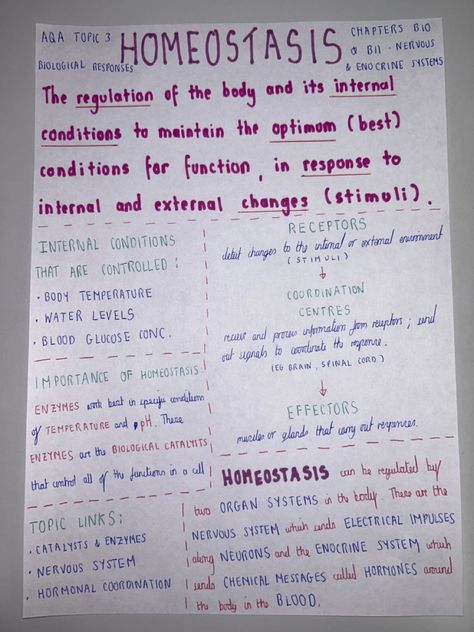 AQA TOPIC 3
BIOLOGICAL RESPONSES
HOMEOSTASIS
CHAPTERS B10
& B11 - NERVOUS
& ENOCRINE SYSTEMS
The regulation of the body and its internal
conditions to maintain the optimum (best)
conditions for function, in response to
internal and external changes (stimuli).
INTERNAL CONDITIONS
THAT ARE CONTROLLED:
· BODY TEMPERATURE
· WATER LEVELS
· BLOOD GLUCOSE CONC.
IMPORTANCE OF HOMEOSTASIS
ENZYMES work best in specific conditions
of TEMPERATURE and pH. These
ENZYMES are the BIOLOGICAL CATALYSTS
that control all of the functions in a cell
TOPIC LINKS:
· CATALYSTS & ENZYMES
· NERVOUS SYSTEM
· HORMONAL COORDINATION
RECEPTORS
detect changes to the internal or external environment
(STIMULI)
↓
COORDINATION
CENTRES
receive and process information from receptors; send
out signals to coordinate the response.
(EG BRAIN, SPINAL CORD)
↓
EFFECTORS
muscles or glands that carry out responses.
HOMEOSTASIS can be regulated by
two ORGAN SYSTEMS in the body. These are the
NERVOUS SYSTEM which sends ELECTRICAL IMPULSES
along NEURONS and the ENOCRINE SYSTEM which
sends CHEMICAL MESSAGES called HORMONES around
the body in the BLOOD.